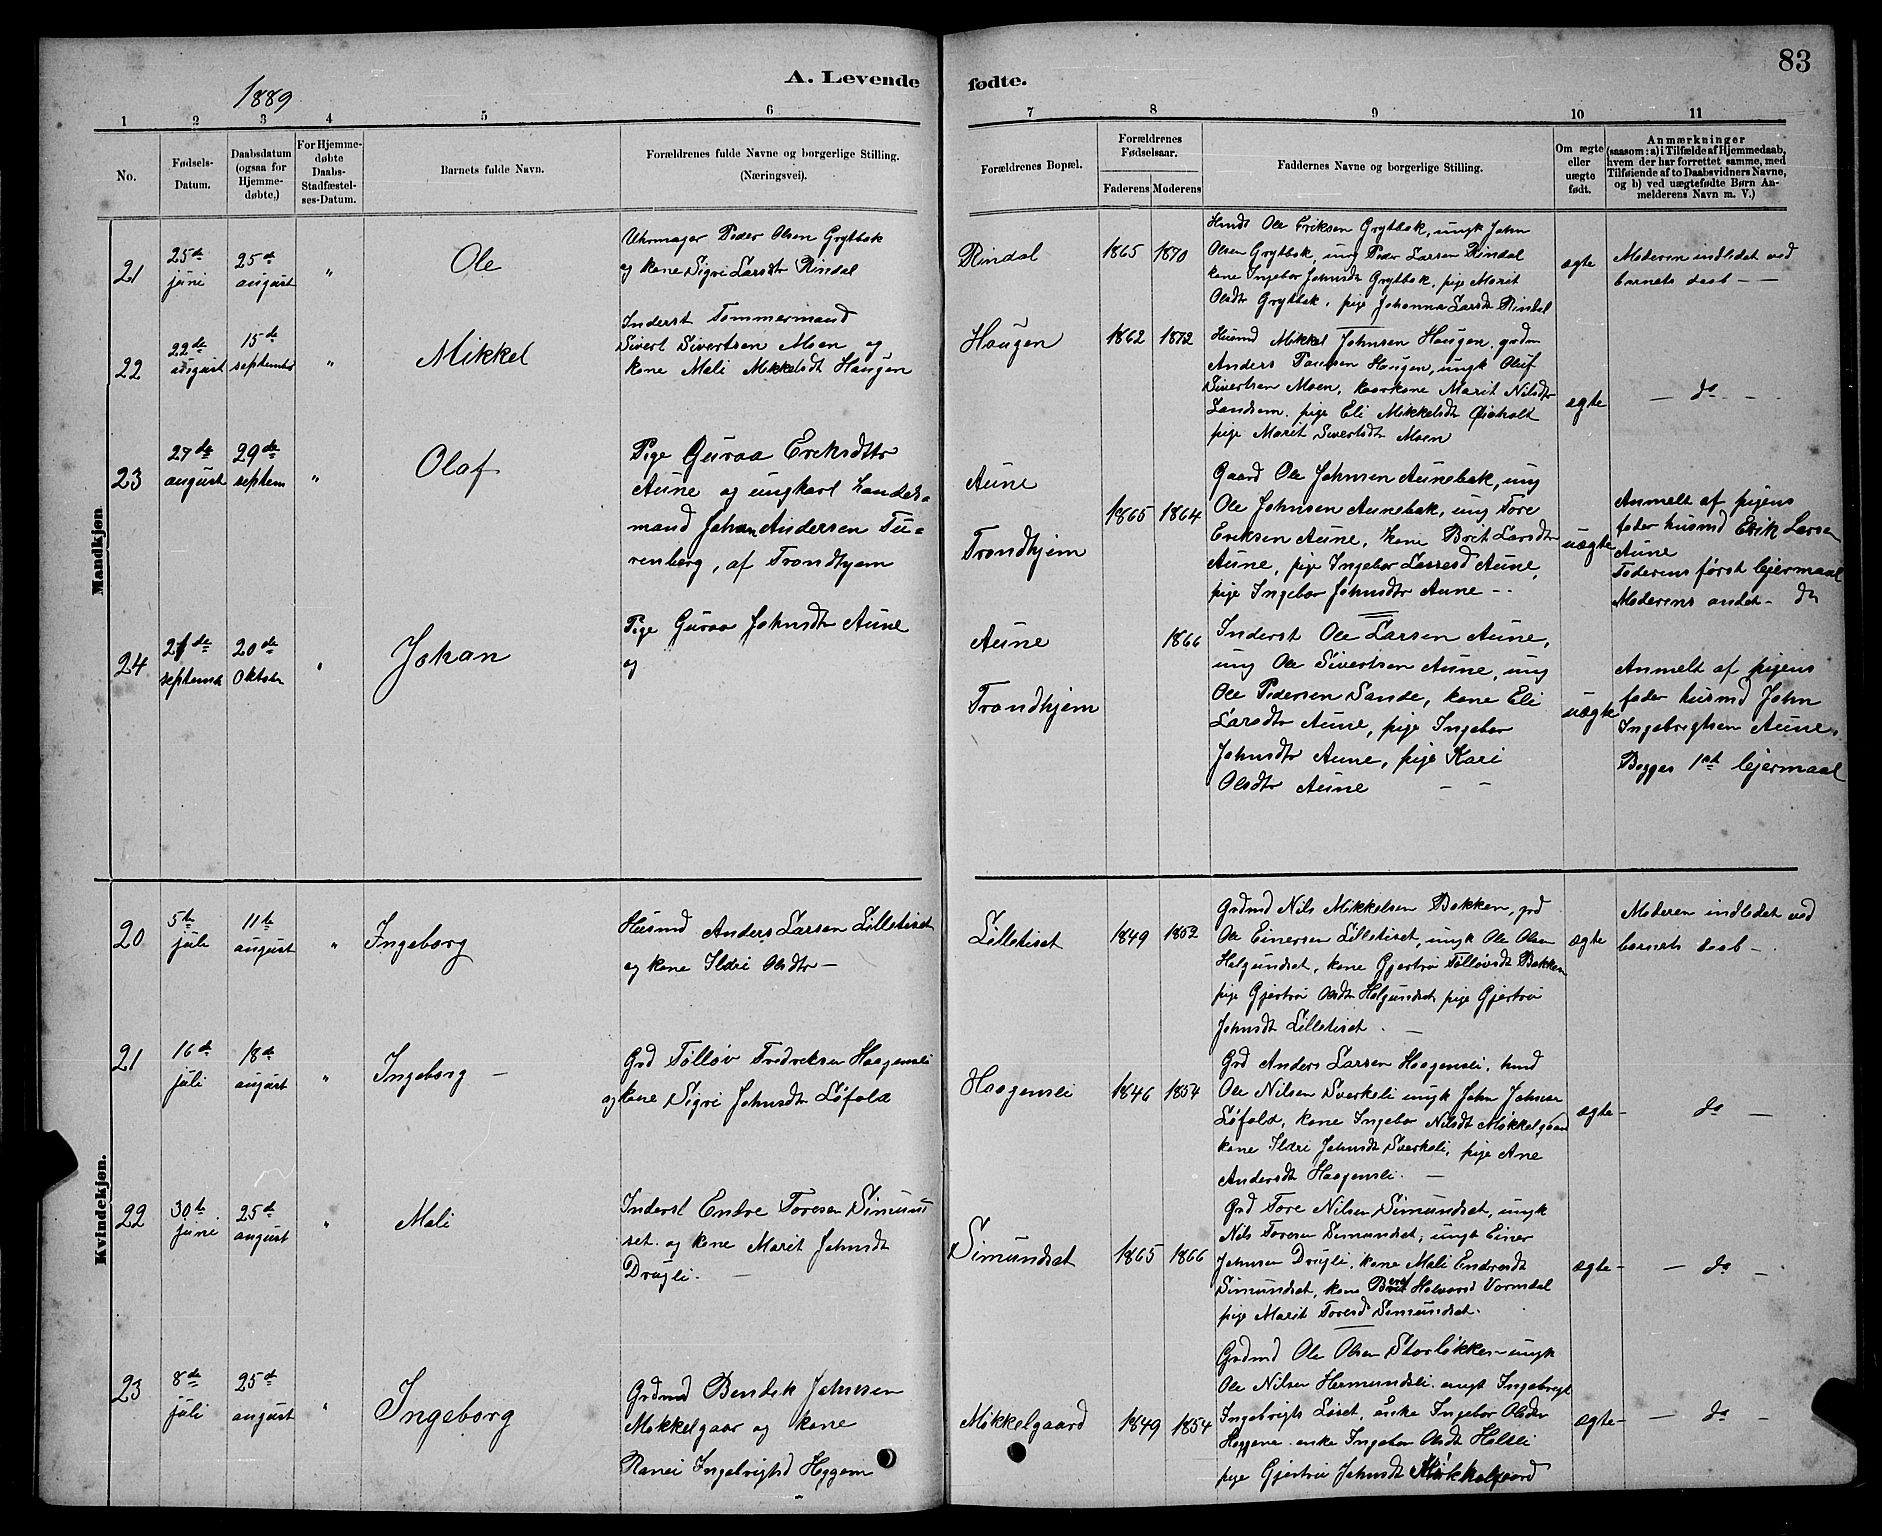 83
A. Levende fødte.
1889
1 2 3 4 5 6 7 8 9 10 11
No.
Fødsels-
Datum.
Daabsdatum
(ogsaa for
Hjemme-
døbte.)
For Hjemme-
døbte
Daabs-
Stadfæstel-
ses-Datum.
Barnets fulde Navn.
Forældrenes fulde Navne og borgerlige Stilling.
(Næringsvei).
Forældrenes Bopæl.
Forældrenes
Fødselsaar.
Faderens Moderens
Faddernes Navne og borgerlige Stilling.
Om ægte
eller
uægte
født.
Anmærkninger
(saasom: a) i Tilfælde af Hjemmedaab,
hvem der har forrettet samme, med
Tilføiende af to Daabsvidners Navne,
og b) ved uægtefødte Børn An-
melderens Navn m. V.)
Mandkjøn
21
25de
juni
25de
august
"
Ole
Uhrmager Peder Olsen Grytbak
og kone Sigri Larsdtr Rindal
Rindal
1865 1870
Husd Ole Eriksen Grytbak, ungk John
Olsen Grytbak, ung Peder Larsen Rindal
kone Ingebor Johnsdtr Grytbak, pige Marit
Olsdtr Grytbak, pige Johanna Larsdtr Rindal
ægte
Moderen indledet ved
barnets daab - -
22
22de
august
15de
september
"
Mikkel
Inderst Tømmermand
Sivert Sivertsen Moen og
kone Mali Mikkelsdt Haugen
Haugen
1862 1872
Husmd Mikkel Johnsen Haugen, grdm
Anders Paulsen Haugen, ungk Oluf
Sivertsen Moen, kaarkone Marit Nilsdtr
Landsem, pige Eli Mikkelsdt
pige Marit Sivertsdt Moen
ægte
- do - -
23
27de
august
29de
septem
"
Olaf
Pige Guroa Eriksdttr
Aune og ungkarl handels-
mand Johan Andersen Tu-
renberg, af Trondhjem
Aune
Trondhjem
1865 1864
Gaard Ole Johnsen Aunebak, ung
Ole Johnsen Aunebak, ung Tore
Eriksen Aune, kone Brit Larsdtr
Aune, pige Ingebor Larsesd Aune,
pige Ingebor Johnsdtr Aune - -
uægte
Anmelt af pigens
fader husmd Erik Larsen
Aune
Faderens først lejermaal
Moderens andet - do
24
21de
septemb
20de
Oktober
"
Johan
Pige Guroa Johnsdtr Aune
og
Aune
Trondhjem
1866
Inderst Ole Larsen Aune,
ung Ole Sivertsen Aune, ung
Ole Pedersen Sande, kone Eli
Larsdtr Aune, pige Ingebor
Johnsdtr Aune, pige Kari
Olsdtr Aune - -
uægte
Anmelt af pigens
fader husmd John
Ingebrigtsen Aune.
Begges 1st lejermaal
Kvindekjøn.
20
5te
juli
11te
august
"
Ingeborg
Husmd Anders Larsen Lilletiset
og kone Ildri Olsdtr -
Lilletiset
1849 1852
Grdmd Nils Mikkelsen Bakken, grd
Ole Einersen Lilletiset, ungk Ole Olsen
Helgundset, kone Gjertru Tølløvsdt Bakken
pige Gjertru Olsdtr Helgundset pige Gjertru
Johnsdt Lilletiset. -
ægte
Moderen indledet ved
barnets daab -
21
16de
juli
18de
august
"
Ingeborg -
Grd Tølløv Fredriksen Haagensli
og kone Sigri Johnsdtr Løfald
Haagensli
1846 1854
Grd Anders Larsen Haagensli, husd
Ole Nilsen Sverkeli ungk John Johnsen
Løfald, kone Ingebor Nilsdt Mikkelgaard
kone Ildri Johnsdt Sverkeli, pige Ane
Andersdt Haagensli. -
ægte -
do -
22
30te
juni
25de
august
"
Mali
Inderst Endre Toresen Simund
set. og kone Marit Johnsdt
Drugli. -
Simundset
1865 1866
Grd Tore Nilsen Simundset, ungk
Nils Toresen Simundset, ungk Einer
Johnsen Drugli, kone Mali Endresdt
Simundset, kone Halvorsd Vormdal
pige Marit Toresd Simundset.
ægte -
- do -
23
8de
juli
25de
august
"
Ingeborg
Grdmd Bendik Johnsen
Mikkelgaar og kone
Ranei Ingebrigtsd Heggem
Mikkelgaard
1849 1854
Grdmd Ole Olsen Storløkken ungk
Ole Nilsen Hermundsli, ungk Ingebrigt
Ingebrigts Løset, enke Ingebor Olsdtr
Heggem. enke Ingebor Olsdt Helsli
pige Gjertru Johnsdt Mikkelgaard
ægte -
- do -